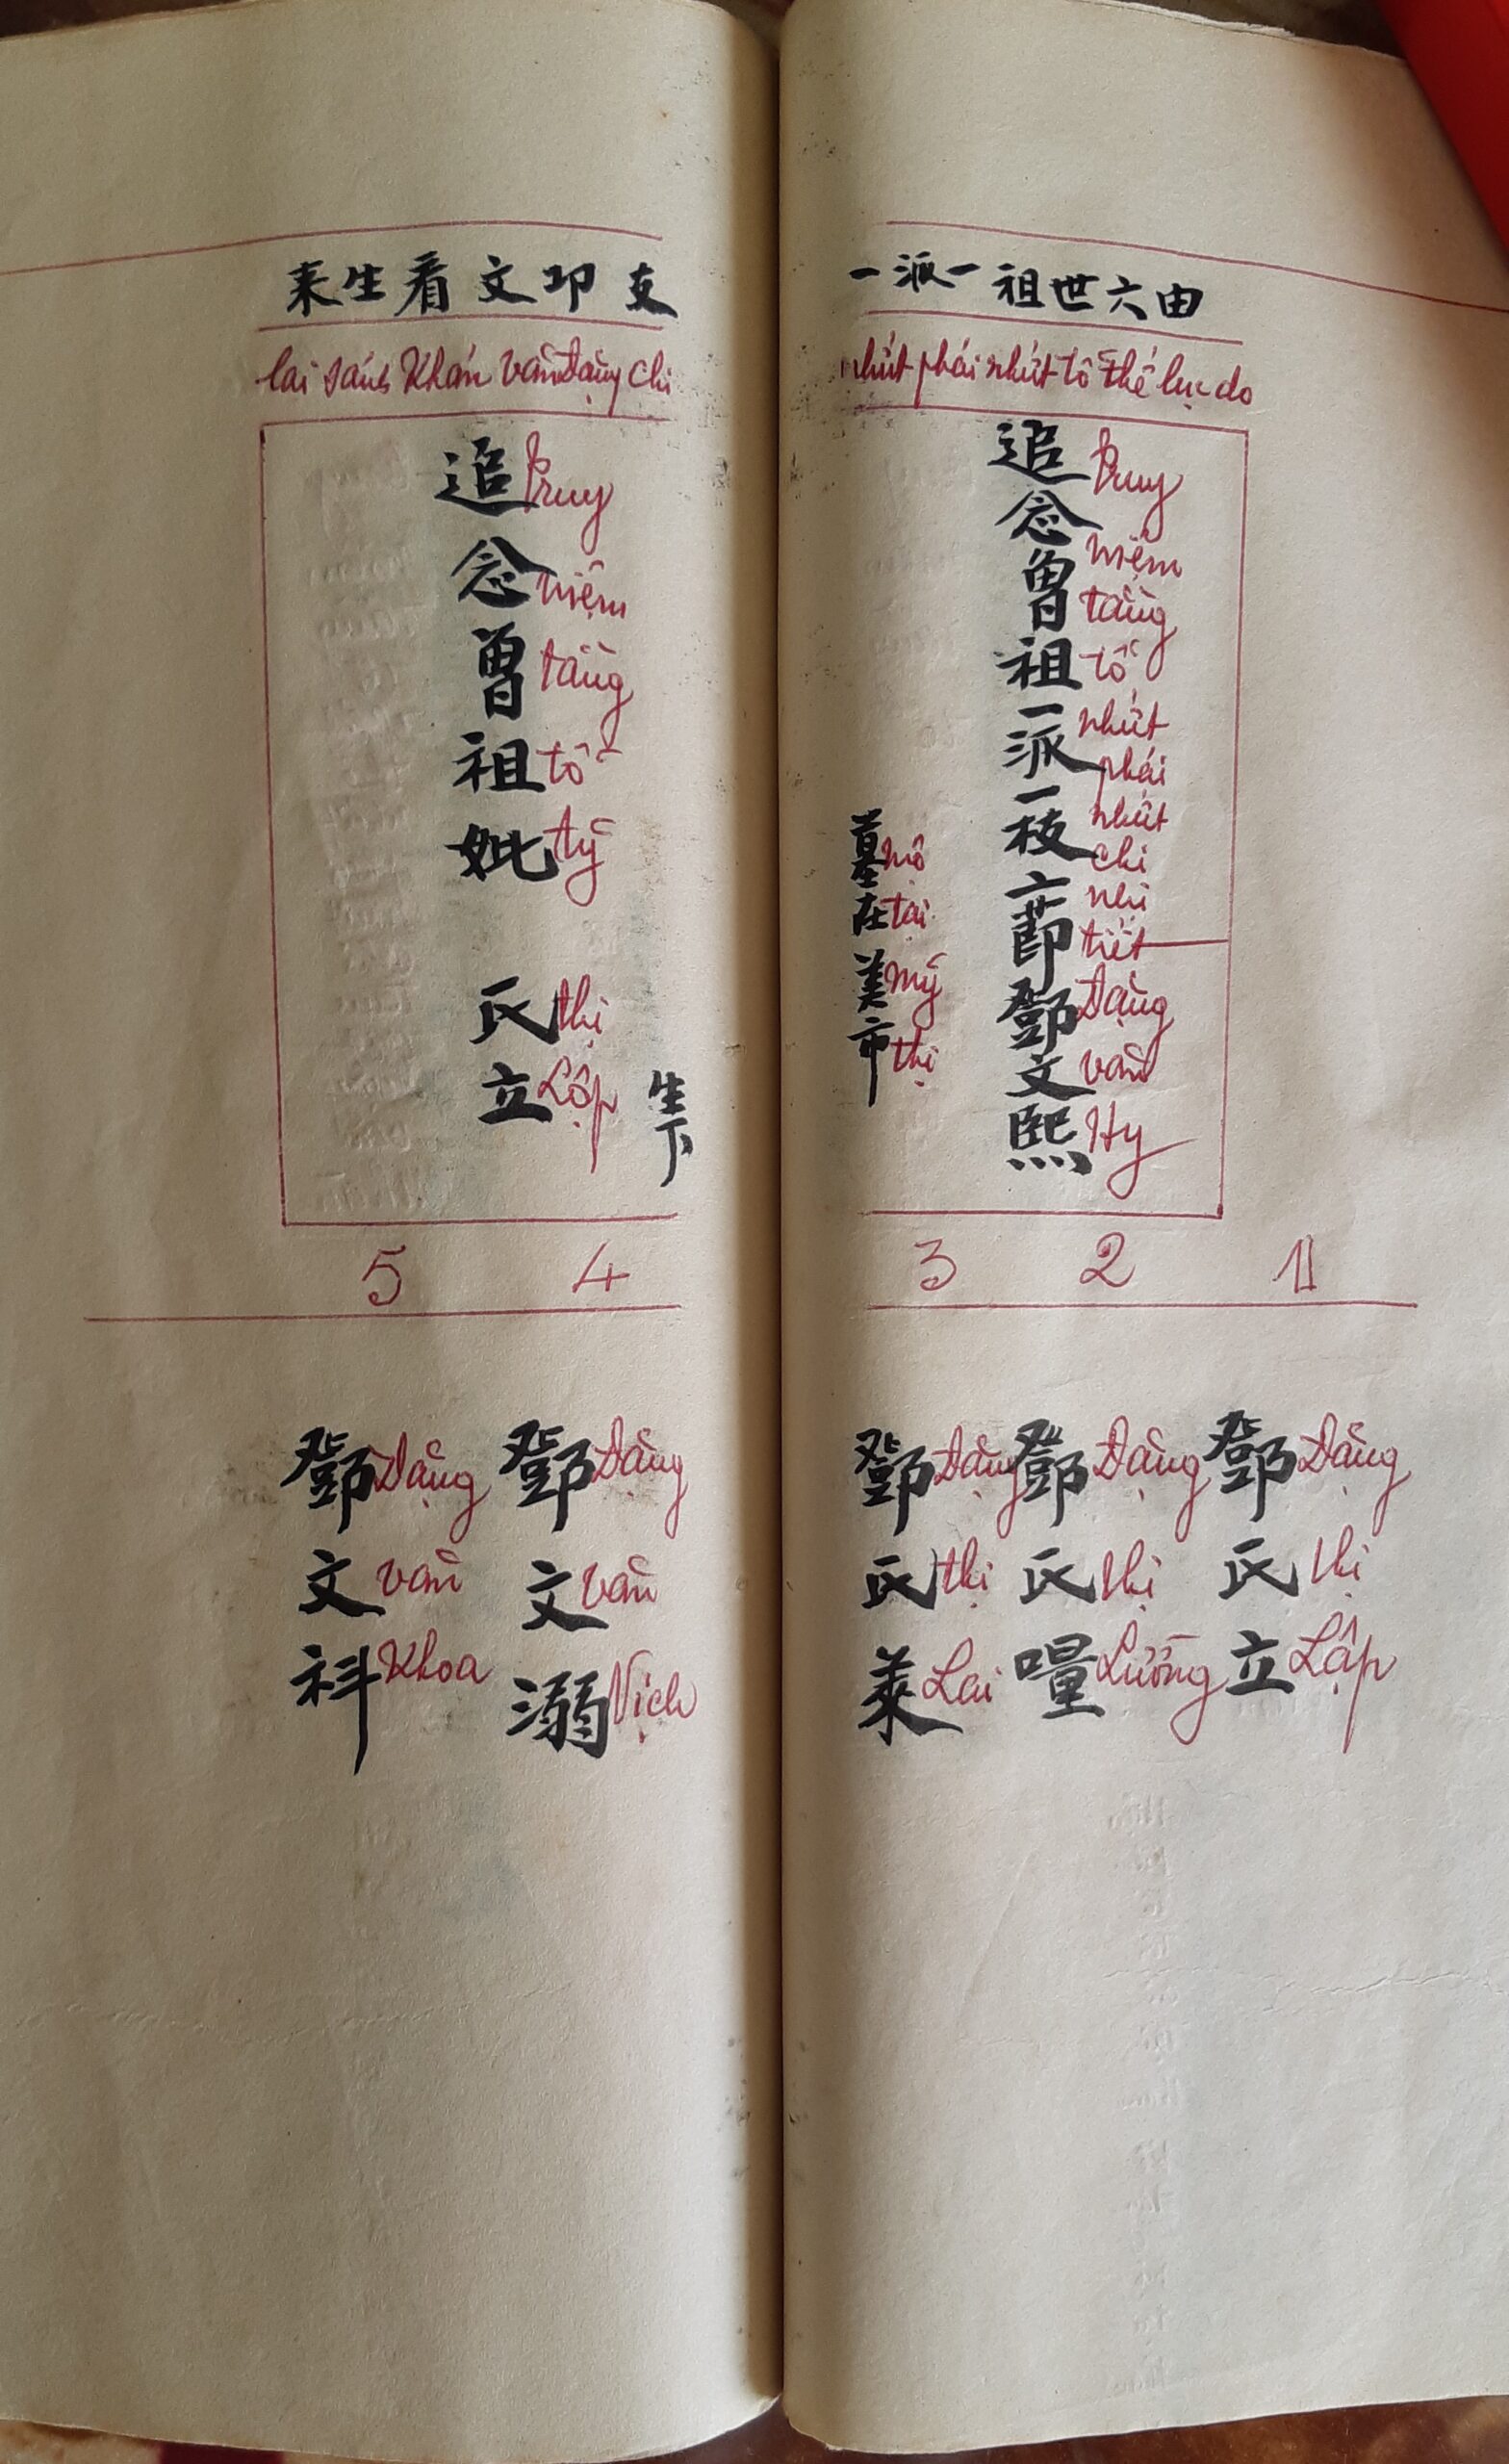 一派一祖世六由
nhứt phái nhứt tổ thế lục do
追念曾祖一派一枝二節鄧文熙
Truy niệm tằng tổ nhứt phái nhứt chi nhị tiết Đặng văn Hy
墓在美市
mộ tại Mỹ thị
来生看文邓支
lai sanh Khán văn Đặng chi
生下
追念曾祖妣 氏立
Truy niệm tằng tổ tỷ thị Lập
1
鄧氏立
Đặng thị Lập
2
鄧氏㗮
Đặng thị Lường
3
鄧氏萊
Đặng thị Lai
4
鄧文溺
Đặng văn Nịch
5
鄧文科
Đặng văn Khoa